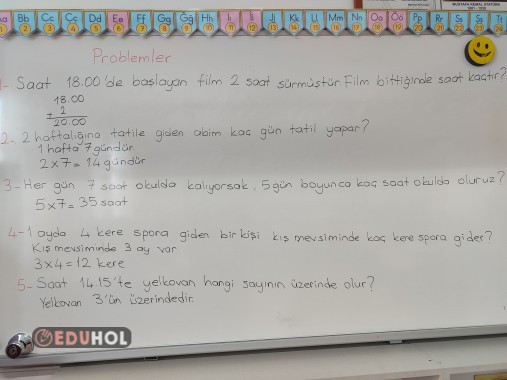 Aa Bb Cc Çç Dd Ee Ff Gg Ğğ Hh Iı İi Jj Kk Ll Mm Nn Oo Öö Pp Rr Ss Şş Tt
MUSTAFA KEMAL ATATÜRK
1881 - 1938
Problemler
1- Saat 18.00'de başlayan film 2 saat sürmüştür. Film bittiğinde saat kaçtır?
18.00
+ 2
20.00
2- 2 haftalığına tatile giden abim kaç gün tatil yapar?
1 hafta 7 gündür.
2x7= 14 gündür
3- Her gün 7 saat okulda kalıyorsak, 5 gün boyunca kaç saat okulda oluruz?
5x7= 35 saat
4- 1 ayda 4 kere spora giden bir kişi kış mevsiminde kaç kere spora gider?
Kış mevsiminde 3 ay var
3x4=12 kere
5- Saat 14.15'te yelkovan hangi sayının üzerinde olur?
Yelkovan 3'ün üzerindedir.
EDUHOL